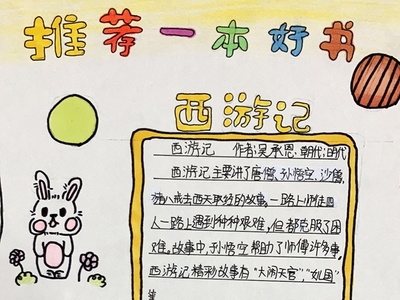 推荐一本好书
西游记
西游记 作者:吴承恩.朝代:明代
西游记主要讲了唐僧,孙悟空,沙僧,
猪八戒去西天取经的故事,一路上师徒四
人一路上遇到种种艰难,但都克服了困
难.故事中,孙悟空帮助了师傅许多事,
西游记精彩故事有"大闹天宫","女儿国"
等